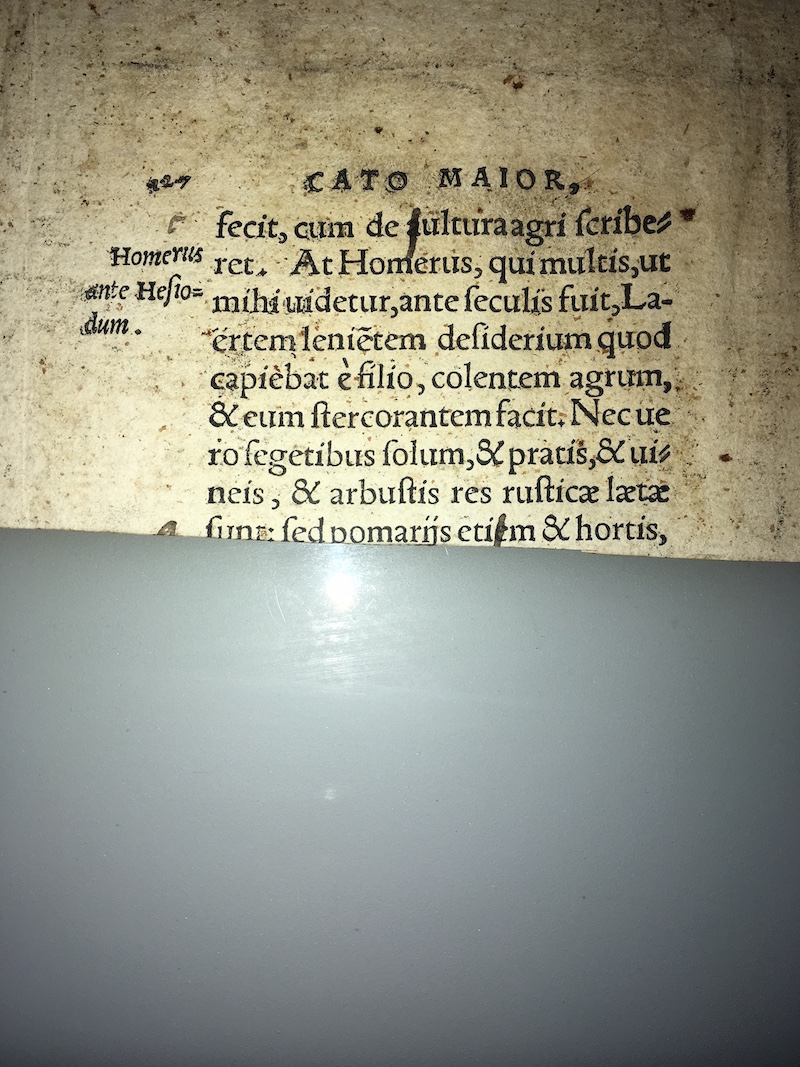 427 CATO MAIOR,
fecit, cum de cultura agri ſcribe⸗
Homerus
ret. At Homerus, qui multis, ut
ante Heſio=
mihi uidetur, ante ſeculis fuit, La-
dum.
ërtem leniẽtem deſiderium quod
capièbat è filio, colentem agrum,
& eum ſtercorantem facit. Nec ue
ro ſegetibus ſolum, & pratis, & ui⸗
neis, & arbuſtis res ruſticæ lætæ
ſunt: ſed pomarijs etiam & hortis,